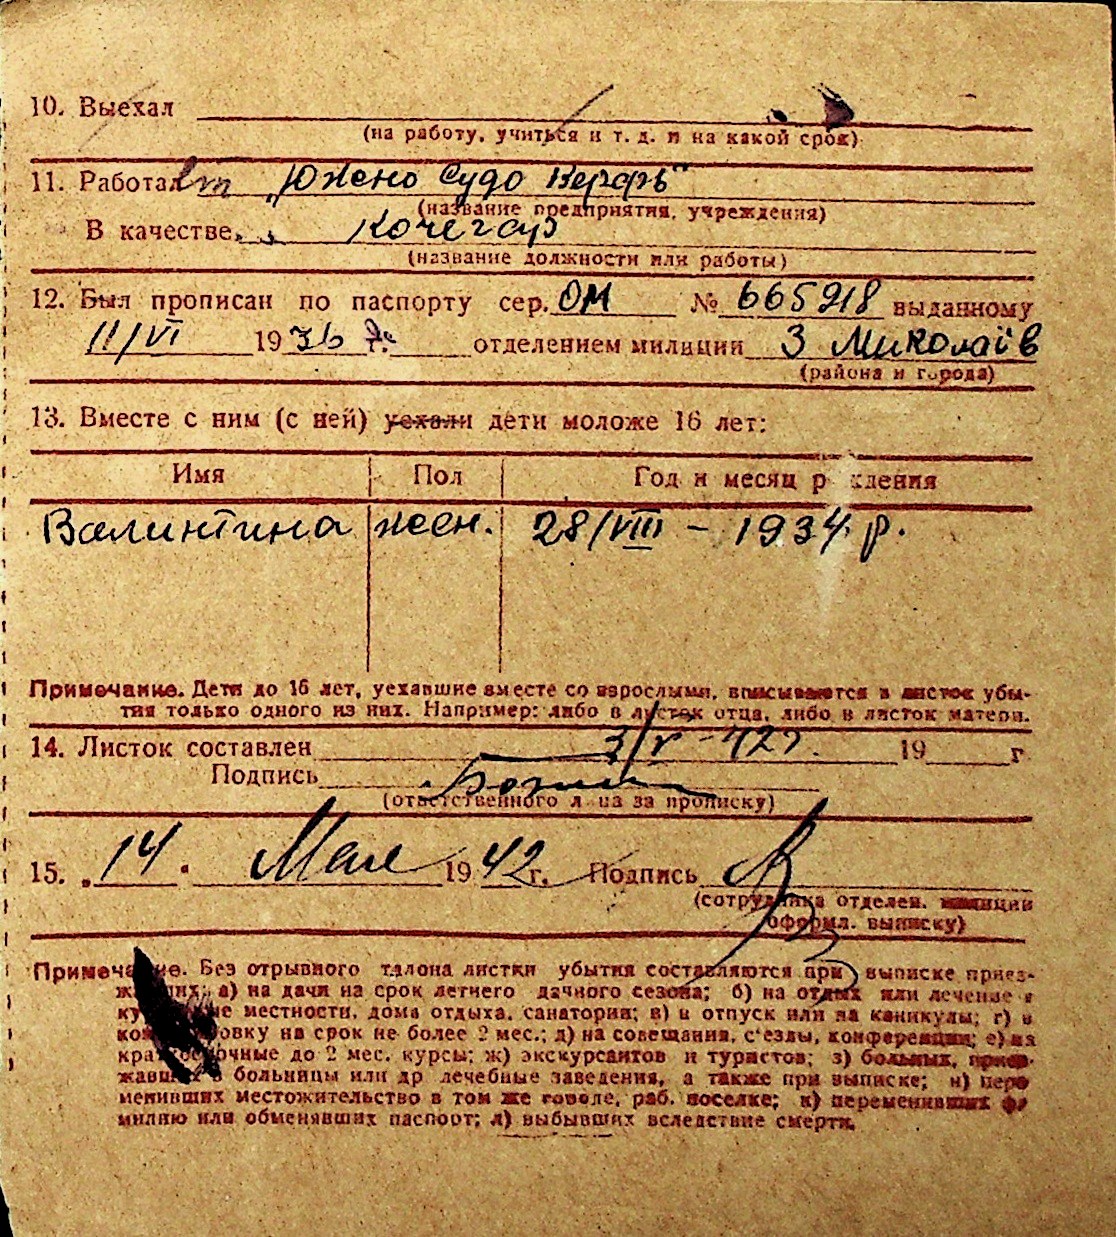 10. Выехал
(на работу, учиться и т. д. и на какой срок)
11. Работал „Южено Судо Верфь“
(название предприятия, учреждения)
В качестве Кочегар
(название должности или работы)
12. Был прописан по паспорту сер. ОМ № 665218 выданному
11/VI 1936 г. отделением милиции 3 Миколаїв
(района и города)
13. Вместе с ним (с ней) уехали дети моложе 16 лет:
Имя Пол Год и месяц рождения
Валинтина жен. 28/VIII – 1934 р.
Примечание. Дети до 16 лет, уехавшие вместе со взрослыми, вписываются в листок убы-
тия только одного из них. Например: либо в листок отца, либо в листок матери.
14. Листок составлен 3/V-42 19 г
Подпись
(ответственного лица за прописку)
15. „14“ Мая 1942 г. Подпись
(сотрудника отделен. милиции
оформл. выписку)
Примечание. Без отрывного талона листки убытия составляются при выписке приез-
жавших: а) на дачи на срок летнего дачного сезона; б) на отдых или лечение в
курортные местности, дома отдыха, санатории; в) в отпуск или на каникулы; г) в
командировку на срок не более 2 мес.; д) на совещания, с'езды, конференции; е) на
краткосрочные до 2 мес. курсы; ж) экскурсантов и туристов; з) больных, приез-
жавших в больницы или др лечебные заведения, а также при выписке; и) пере
менивших местожительство в том же городе, раб. поселке; к) переменивших фа
милию или обменявших паспорт; л) выбывших вследствие смерти.